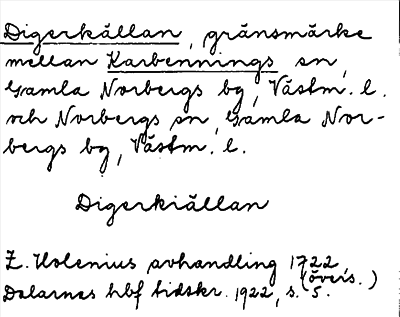 Digerkällan, gränsmärke
mellan Karbennings sn,
Gamla Norbergs bg, Västm. l.
och Norbergs sn, Gamla Nor-
bergs bg, Västm. l.
Digerkiällan
Z. Holenius avhandling 1722,
(övers. )
Dalarnas hbf tidskr. 1922, s. 5.